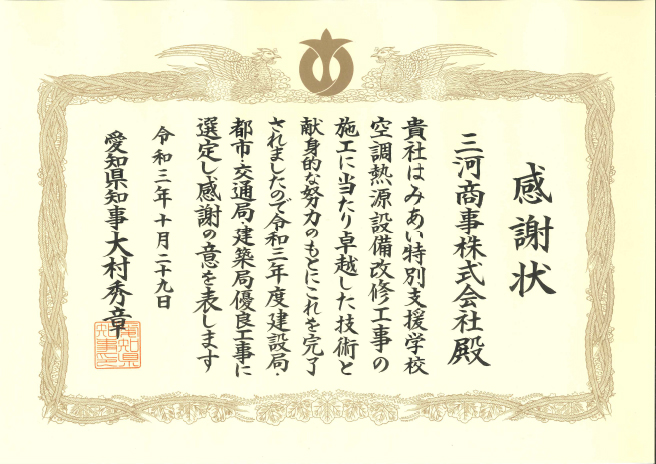 感謝状
三河商事株式会社殿
貴社はみあい特別支援学校
空調熱源設備改修工事の
施工に当たり卓越した技術と
献身的な努力のもとにこれを完了
されましたので令和三年度建設局・
都市・交通局・建築局優良工事に
選定し感謝の意を表します
令和三年十月二十九日
愛知県知事大村秀章
愛知県知事之印